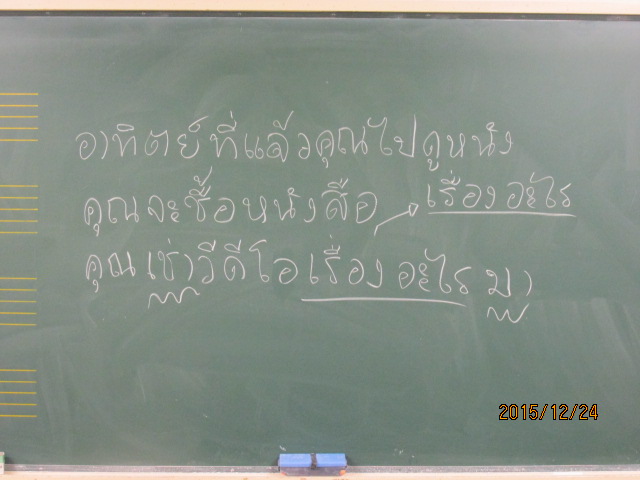 อาทิตย์ที่แล้วคุณไปดูหนัง
คุณจะซื้อหนังสือ เรื่องอะไร
คุณเช่าวีดีโอเรื่องอะไรมา
2015/12/24